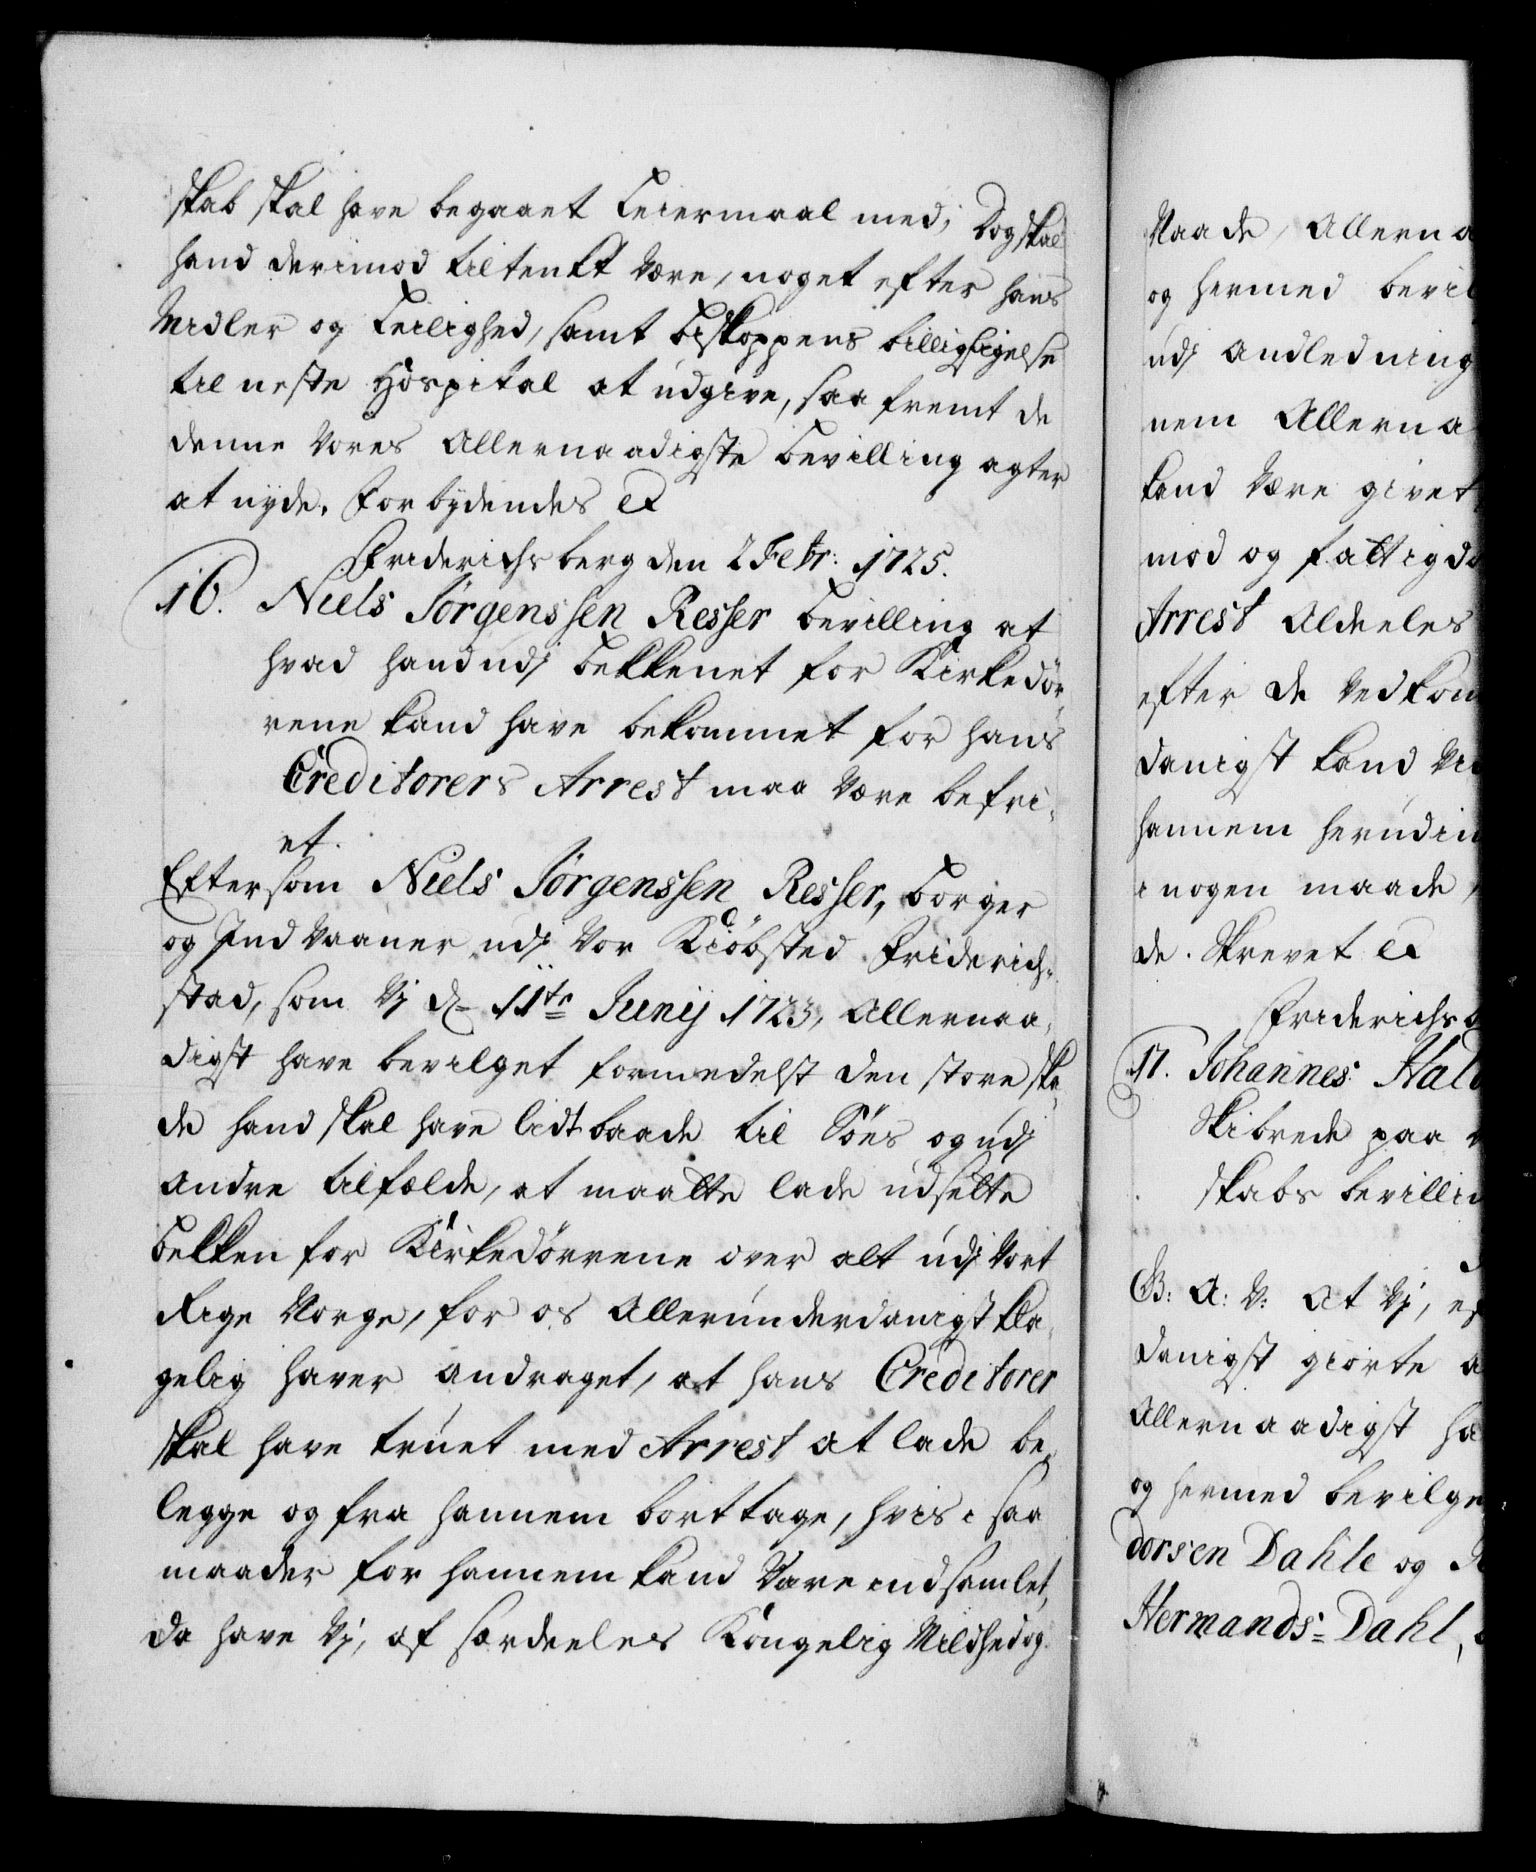 skab skal have begaaet Leiermaal med; Dog skal
hand derimod tiltenkt være, noget efter hans
Midler og Leilighed, samt Biskoppens billigsigelse
til neste Hospital at udgive, saa fremt de
denne Vores Allernaadigste bevilling agter
at nyde. Forbydendes &
Friderichsberg den 2 Febr: 1725.
16. Niels Jörgenssen Resser bevilling at
hvad hand udj bekkenet for Kirkedör,
rene kand have bekommet for hans
Creditorers Arrest maa være befri,
et.
Eftersom Niels Jörgenssen Resser, borger
og Indvaaner udj Vor Kiöbsted Friderich,
stad, som Vj d. 11te Junij 1723, Allernaa,
digst have bevilget formedelst den store ska,
de hand skal have lidt baade til Söes og udj
andre tilfælde, at maatte lade udsette
bekken for Kirkedörrene over alt udj Vort
Rige Norge, for os Allerunderdanigst kla,
gelig haver andraget, at hans Creditorer
skal have truet med Arrest at lade be,
legge og fra hannem borttage, hvis i saa
maader for hannem kand være indsamlet,
da have Vj, af særdeeles Kongelig Mildhed og
Naade, Allerna
og hermed bevil
udj andledning
nem Allerna
kand være givet
mod og fattigdo
Arrest Aldeeles
efter de Vedkom
danigst kand
hannem herudin
i nogen maade
de. Skrevet &
Friderichsb
17. Johannes Hal
Skibrede paa
skabs bevillin
G: A: V: at Vj, ef
danigst giorte a
Allernaadigst ha
og hermed bevilge
dorsen Dahle og
Hermands=Dahl,